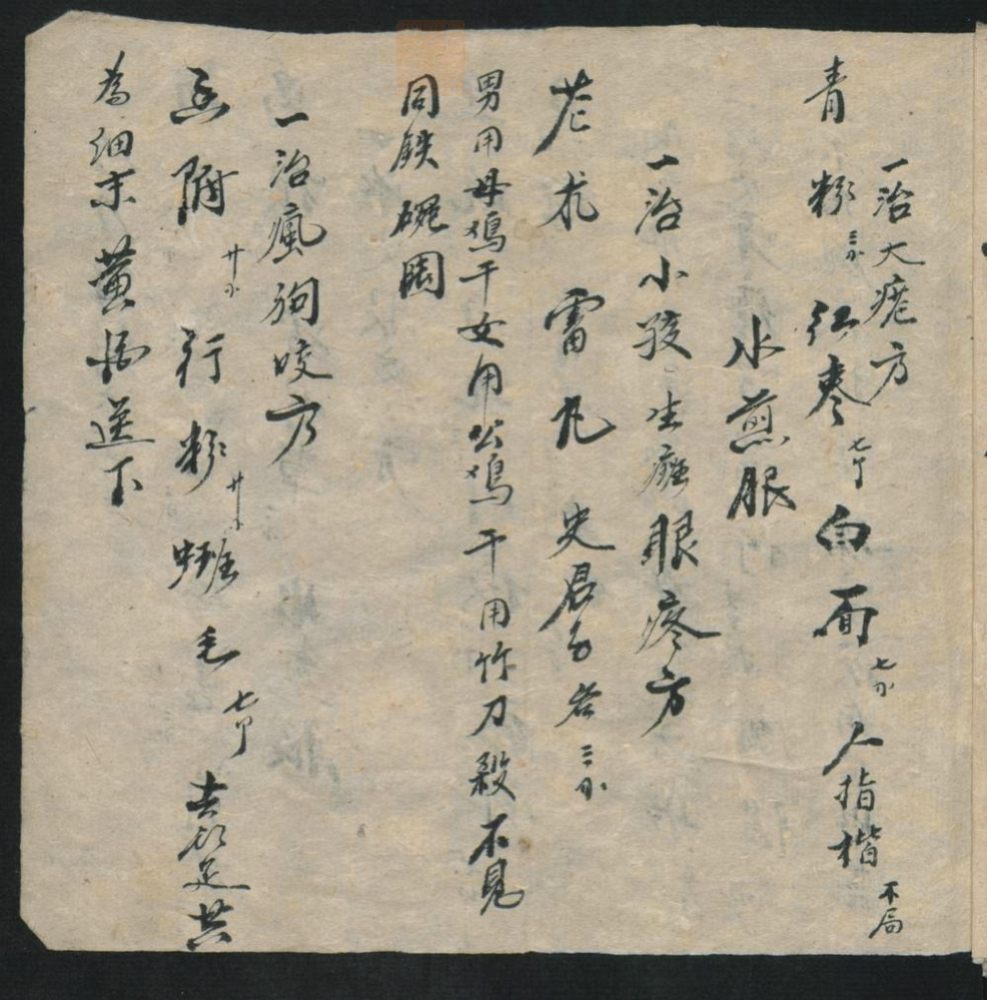 一治大瘡方
青粉三分 红枣七个 白面七分 人指楷不局
水煎服
一治小孩生疳眼疼方
芒术 雷丸 史君子各三分
男用母鳮干女用公鳮干用竹刀殺不見
同鉄碗困
一治瘋狗咬方
附廿分 行粉廿分 毛七个 去足共
為細末黄酒送下